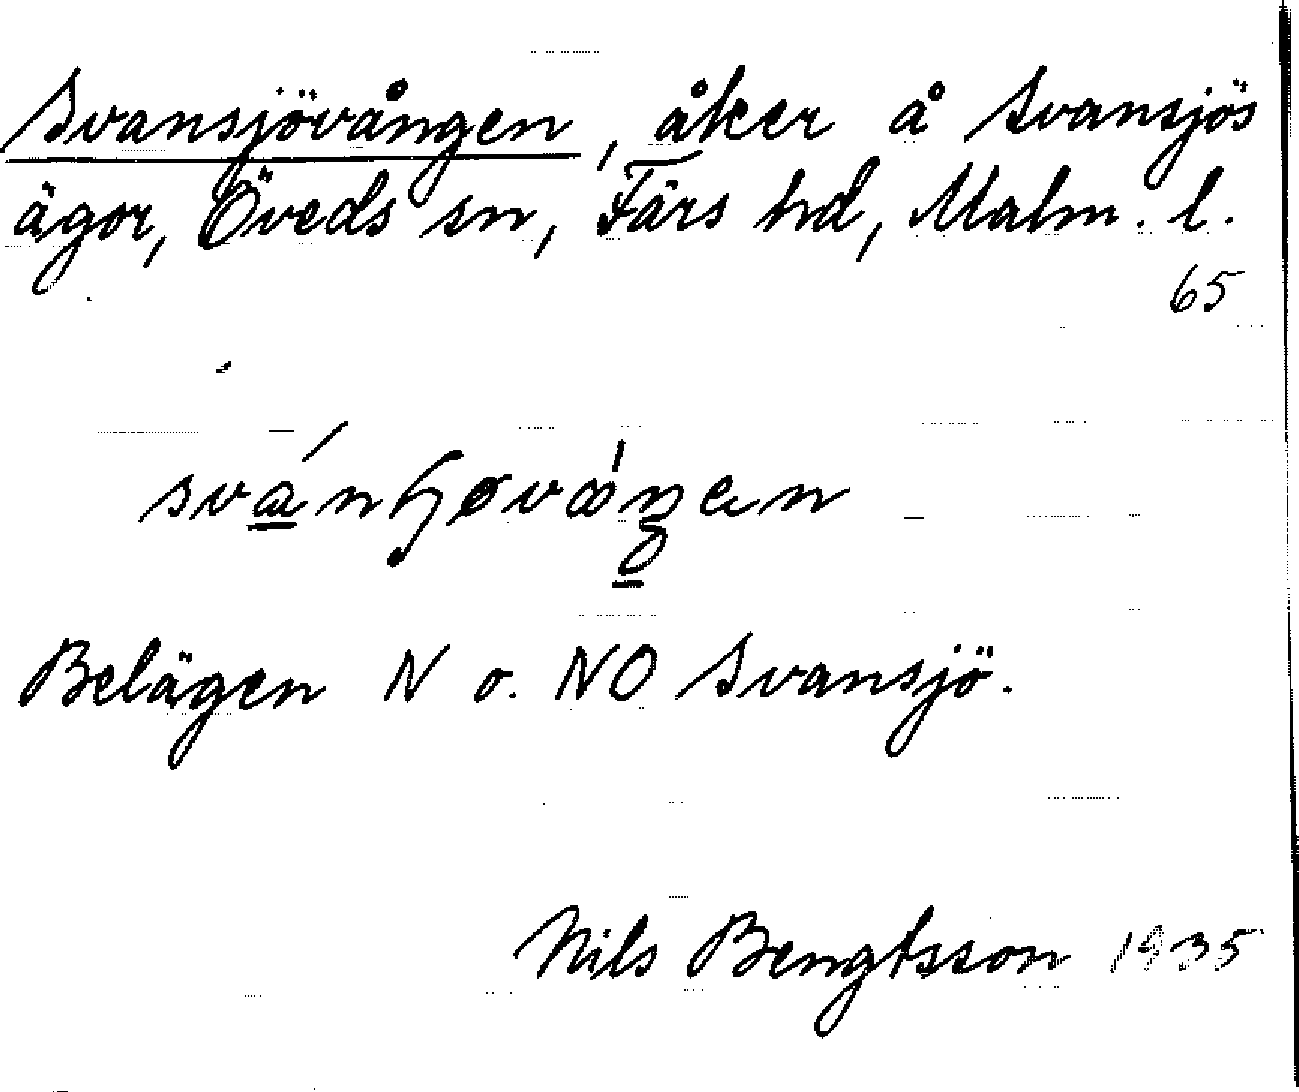 Svansjövången, åker å Svansjös
ägor, Öveds sn, Färs hd, Malm. l.
65
Belägen N o. NO Svansjö.
Nils Bengtsson 1935